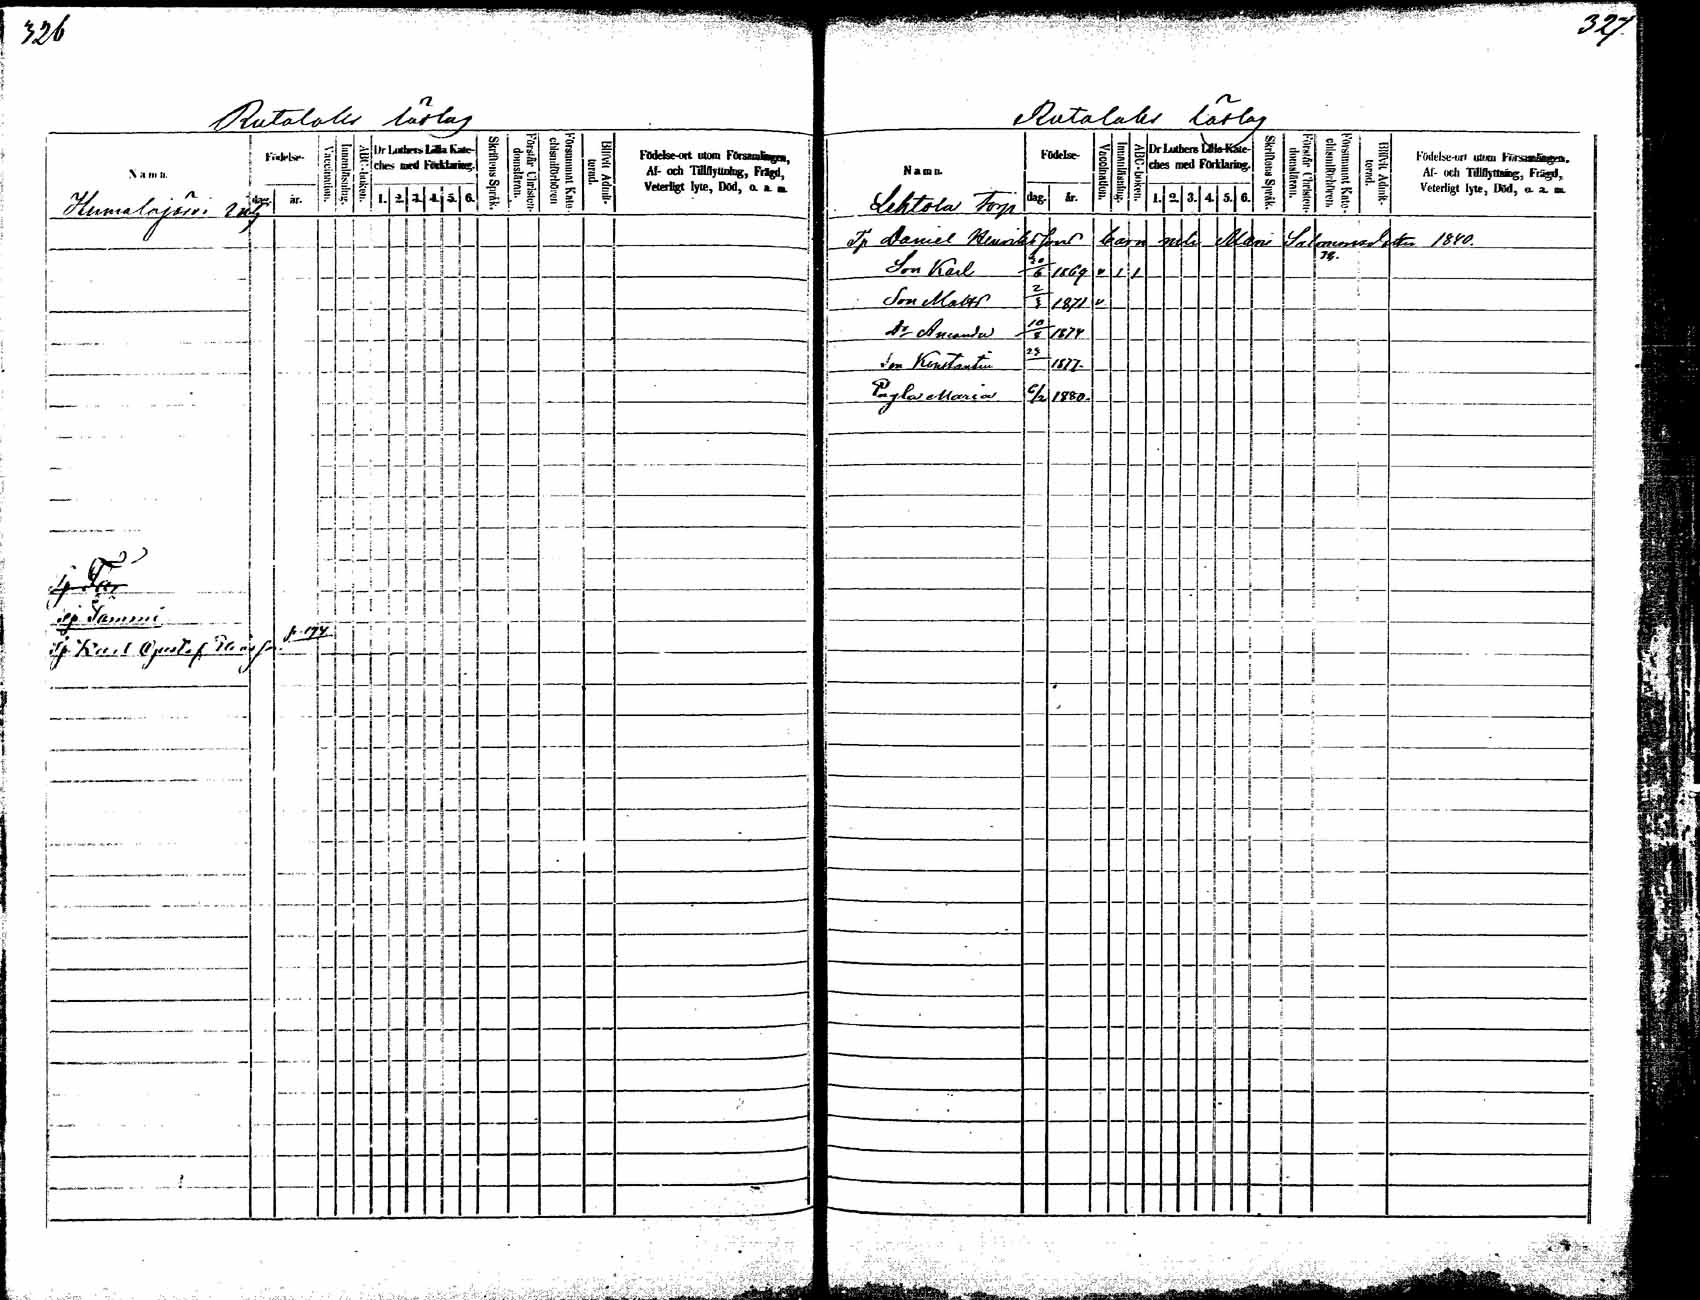 326
Rutalaks läslag
Namn.
Födelse-
dag.
år.
Vaccination.
Innanläsning.
ABC-boken.
Dr Luthers Lilla Kate-
ches med Förklaring.
1. 2. 3. 4. 5. 6.
Skriftens Språk.
Förstår Christen-
domsläran.
Försummat Kate-
chismiförhören
Blifvit Admit-
terad.
Födelse-ort utom Församlingen,
Af- och Tillflyttning, Frägd,
Veterligt lyte, Död, o. a. m.
Humalajärvi
Tammi
Karl Gustaf
p. 194
327.
Rutalaks läslag
Namn.
Födelse-
dag.
år.
Vaccination.
Innanläsning.
ABC-boken.
Dr Luthers Lilla Kate-
ches med Förklaring.
1. 2. 3. 4. 5. 6.
Skriftens Språk.
Förstår Christen-
domsläran.
Försummat Kate-
chismiförhören.
Blifvit Admit-
terad.
Födelse-ort utom Församlingen,
Af- och Tillflyttning, Frägd,
Veterligt lyte, Död, o. a. m.
Lehtola Torp
Tp Daniel Henrikssons barn med Maria Salomonsdotter 1840.
Son Karl 20/6 1869 v 1 1
Son Matts 2/8 1871 v
Dr Amanda 10/8 1874
Son Konstantin 23 1877.
Maria 6/2 1880.